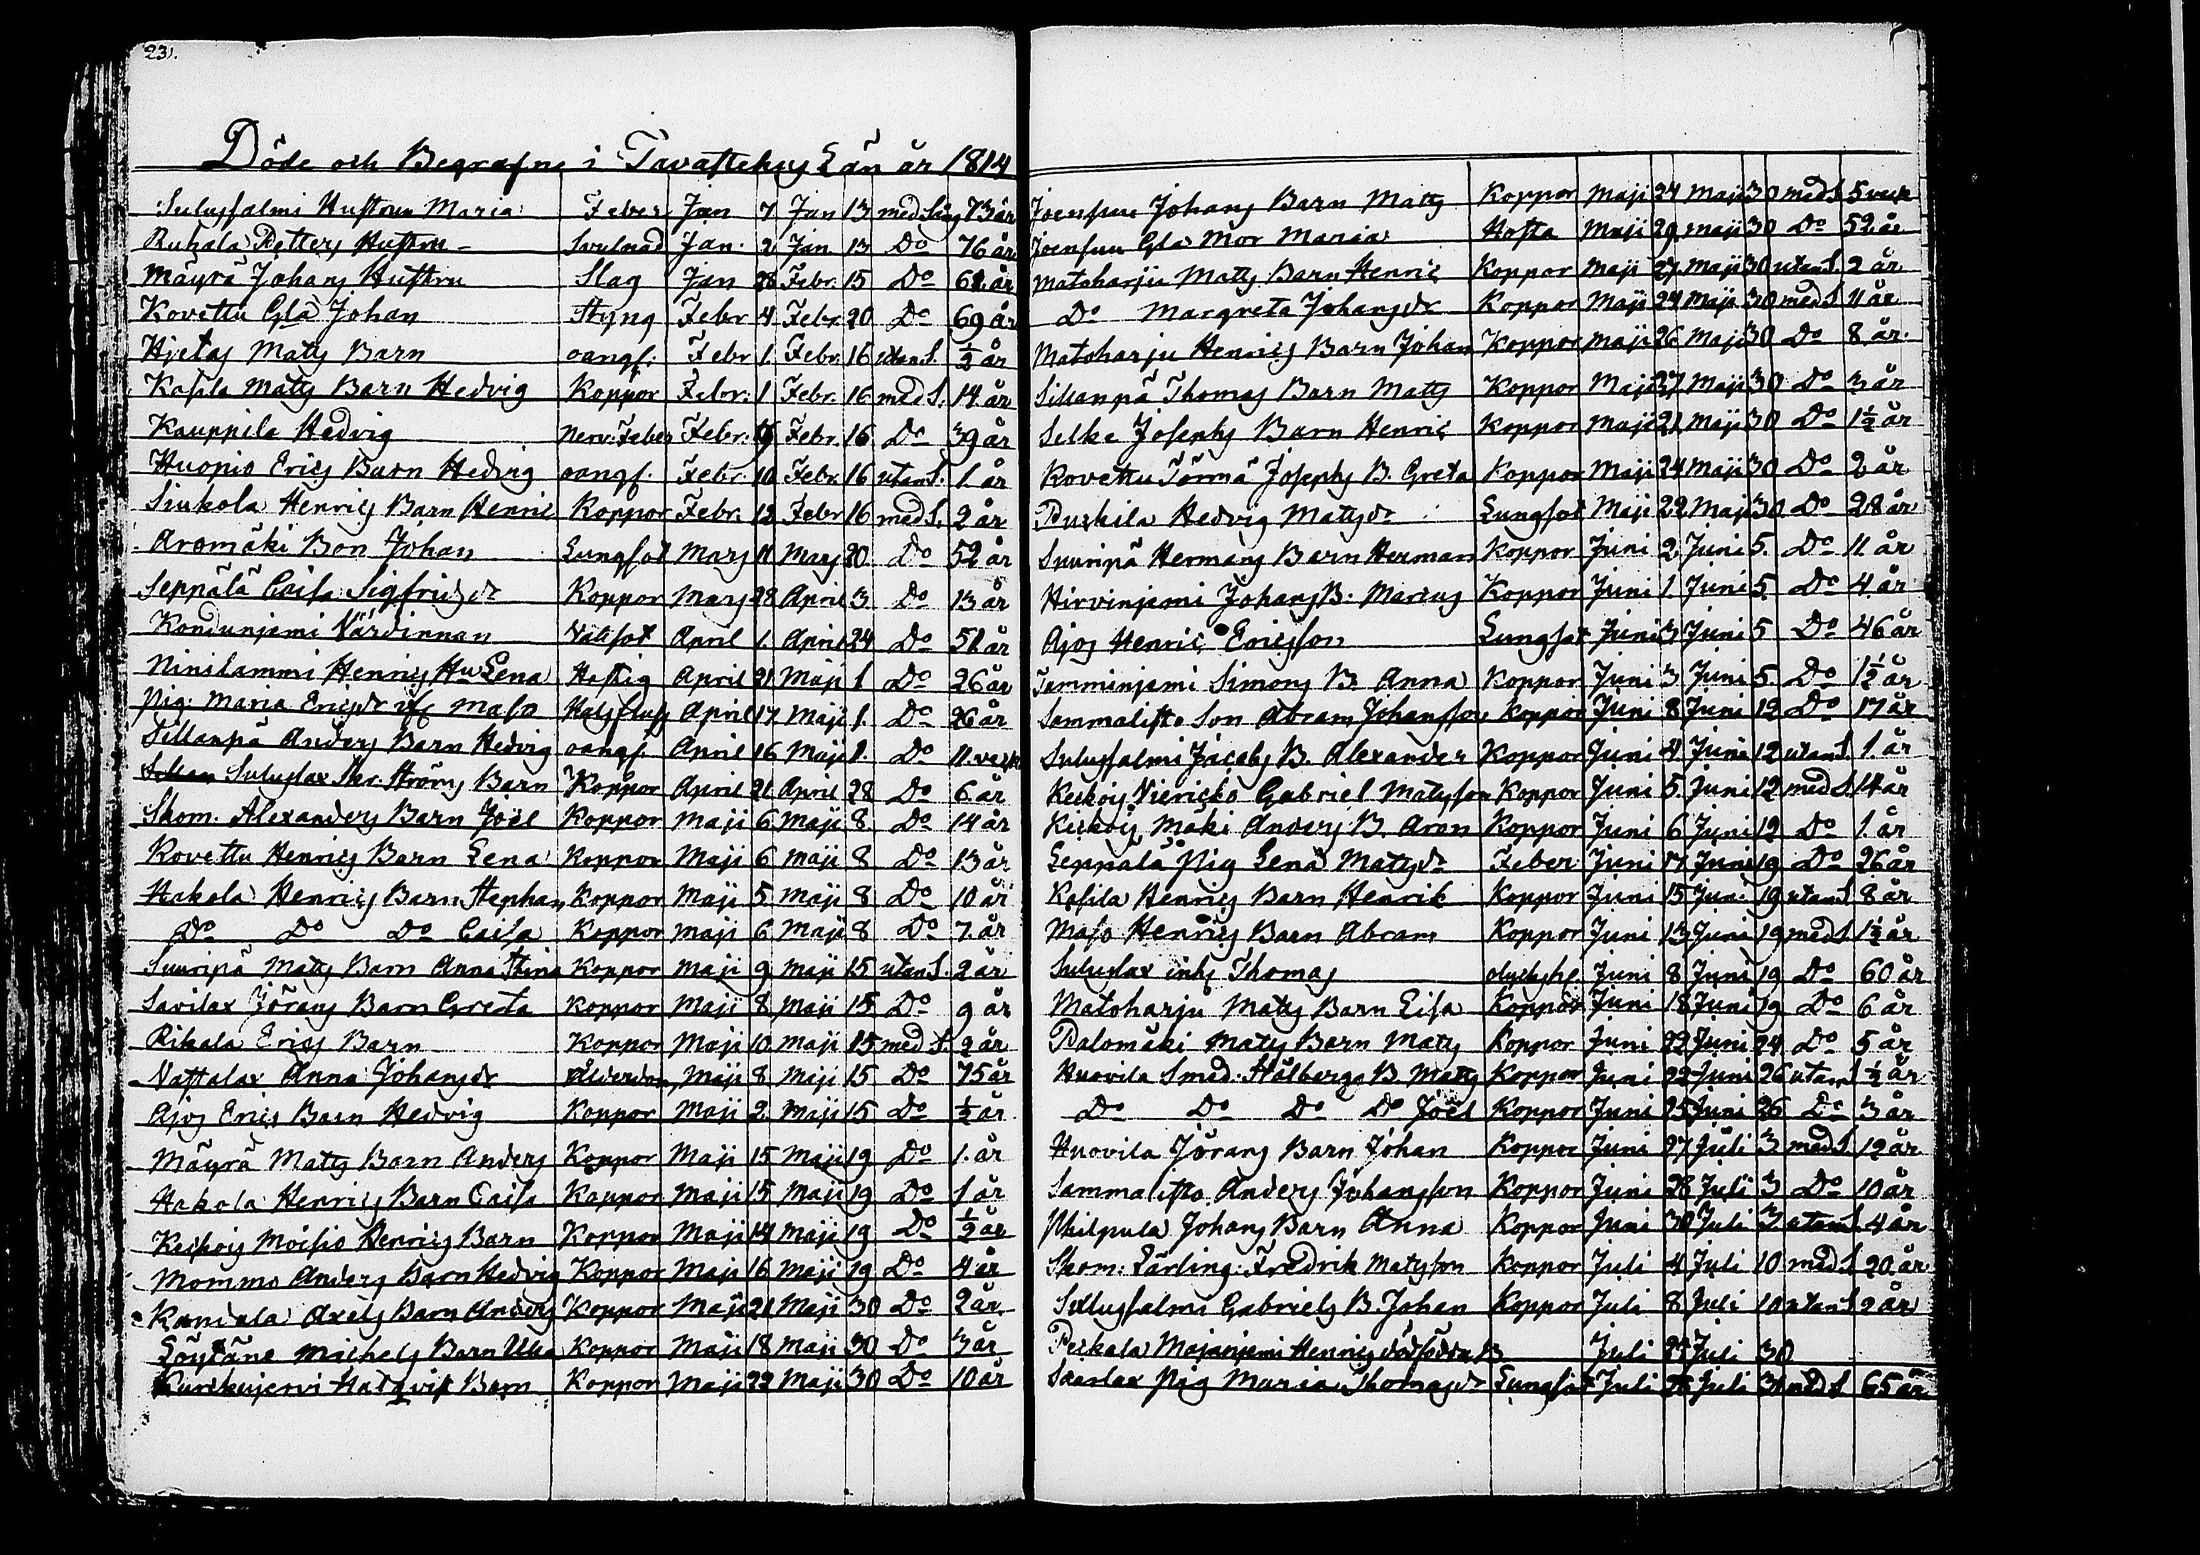 23.
Döde och Begrafne i Tavastehus Län år 1814
Sulusalmi Hustru Maria Feber Jan 7 Jan 13 med Säng 73 år
Ruhala Petters Hustru Jan. 2 Jan 13 Do 76 år
Mäyrä Johans Hustru Slag Jan 28 Febr. 15 Do 62 år
Kovettu Gla Johan Styng Febr 4 Febr. 20 Do 69 år
Hietas Matts Barn oangf. Febr 1. Febr. 16 utan S. ½ år
Kosila Matts Barn Hedvig Koppor Febr. 1 Febr. 16 med S. 14 år
Kauppila Hedvig Nerv. Feber Febr. Febr. 16 Do 39 år
Huopio Erics Barn Hedvig oangf. Febr. 10 Febr. 16 utan S. 1 år
Siukola Henrics Barn Henric Koppor Febr. 12 Febr 16 med S. 2 år
Aromäki Bon Johan Lungsot Mars 11 Mars 20 Do 52 år
Seppälä Caisa Sigfridsdr Koppor Mars 28 April 3 Do 13 år
Värdinnan Vatsot April 1. April 24 Do 51 år
Ninilammi Henrics Hu Lena Hastig April 21 Maji 1 Do 26 år
Pig. Maria Ericsdr if. Maso Halsfluss April 17 Maji 1. Do 26 år
Sillanpä Anders Barn Hedvig oangf. April 16 Maji 1. Do 11 veck
Suluslax Skr. Ströms Barn Koppor April 21 April 28 Do 6 år
Skom. Alexanders Barn Joël Koppor Maji 6 Maji 8 Do 14 år
Kovettu Henrics Barn Lena Koppor Maji 6 Maji 8 Do 13 år
Hakola Henrics Barn Stephan Koppor Maji 5 Maji 8 Do 10 år
Do Do Do Caisa Koppor Maji 6 Maji 8 Do 7. år
Suuripä Matts Barn Anna Stina Koppor Maji 9 Maji 15 utan S. 2 år
Savilax Jörans Barn Greta Koppor Maji 8 Maji 15 Do 9 år
Rikala Erics Barn Koppor Maji 10 Maji 15 med S. 2 år
Vattalax Anna Johansdr Ålderdom Maji 8 Maji 15 Do 75 år
Ajos Erics Barn Hedvig Koppor Maji 2 Maji 15 Do ½ år
Mäyrä Matts Barn Anders Koppor Maji 15 Maji 19 Do 1. år
Hakola Henrics Barn Caisa Koppor Maji 15 Maji 19 Do 1 år
Keskois Moisio Henrics Barn Koppor Maji 14 Maji 19 Do ½ år
Mommo Anders Barn Hedvig Koppor Maji 16 Maji 19 Do 4 år
Kandala Axels Barn Anders Koppor Maji 21 Maji 30 Do 2 år
Michels Barn Ulla Koppor Maji 18 Maji 30 Do 3 år
Barn Koppor Maji 22 Maji 30 Do 10 år
Joensuu Johans Barn Matts Koppor Maji 24 Maji 30 med S 5 veck
Joensuu Gla Mor Maria Hosta Maji 29 Maji 30 Do 52 år
Matoharju Matts Barn Henric Koppor Maji 27 Maji 30 utan S. 2 år
Do Margreta Johansdr Koppor Maji 24 Maji 30 med S. 11 år
Matoharju Henrics Barn Johan Koppor Maji 26 Maji 30 Do 8 år.
Sillanpä Thomas Barn Matts Koppor Maji 27 Maji 30 Do 3 år
Selke Josephs Barn Henric Koppor Maji 21 Maji 30 Do 1½ år
Kovettu Törmä Josephs B. Greta Koppor Maji 24 Maji 30 Do 2 år
Hedvig Mattsdr Lungsot Maji 22 Maji 30 Do 28 år
Suuripä Hermans Barn Herman Koppor Juni 2 Juni 5. Do 11 år
Hirvinjemi Johans B. Marcus Koppor Juni 1. Juni 5 Do 4 år
Ajos Henric Ericsson Lungsot Juni 3 Juni 5 Do 46 år
Tamminjemi Simons B. Anna Koppor Juni 3 Juni 5. Do 1½ år
Sammalisto Son Abram Johansson Koppor Juni 8 Juni 12 Do 17 år
Sulusalmi Jacobs B. Alexander Koppor Juni 4 Juni 12 utan S 1. år
Keskois Viericko Gabriel Matsson Koppor Juni 5. Juni 12 med S. 14 år
Keskois Mäki Anders B. Aron Koppor Juni 6 Juni 12 Do 1. år
Seppälä Pig Lena Mattsdr Feber Juni 17 Juni 19 Do 26 år
Kosila Henrics Barn Henrik Koppor Juni 15 Juni 19 utan S 8 år
Maso Henrics Barn Abram Koppor Juni 13 Juni 19 med S 1½ år
Suluslax inhs Thomas Juni 8 Juni 19 Do 60 år
Matoharju Matts Barn Lisa Koppor Juni 18 Juni 19 Do 6 år
Palomäki Matts Barn Matts Koppor Juni 22 Juni 24 Do 5 år
Huovila Smed. Stålbergs B. Matts Koppor Juni 22 Juni 26 utan S ½ år
Do Do Do Do Joël Koppor Juni 25 Juni 26 Do 3 år
Huovila Jörans Barn Johan Koppor Juni 27 Juli 3 med S 12 år
Sammalisto Anders Johansson Koppor Juni 28 Juli 3 Do 10 år
Philpula Johans Barn Anna Koppor Juni 30 Juli 3 utan S 4 år
Skom. Lärling. Fredrik Matsson Koppor Juli 4 Juli 10 med S 20 år
Sullusalmi Gabriels B. Johan Koppor Juli 8 Juli 10 utan S 2 år
Peckala Majanjemi Henrics dödfödda B Juli Juli 30
Pig Maria Thomasdr Lungsot Juli 26 Juli med S 65 år